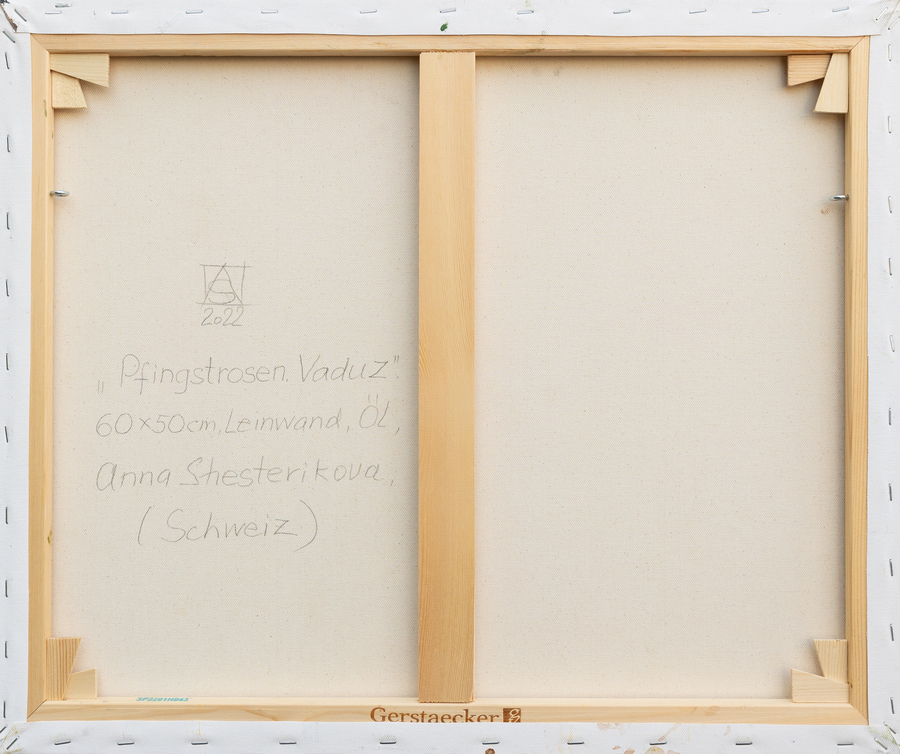 2022
„Pfingstrosen. Vaduz".
60x50cm, Leinwand, Öl,
Anna Shesterikova,
(Schweiz)
Gerstaecker